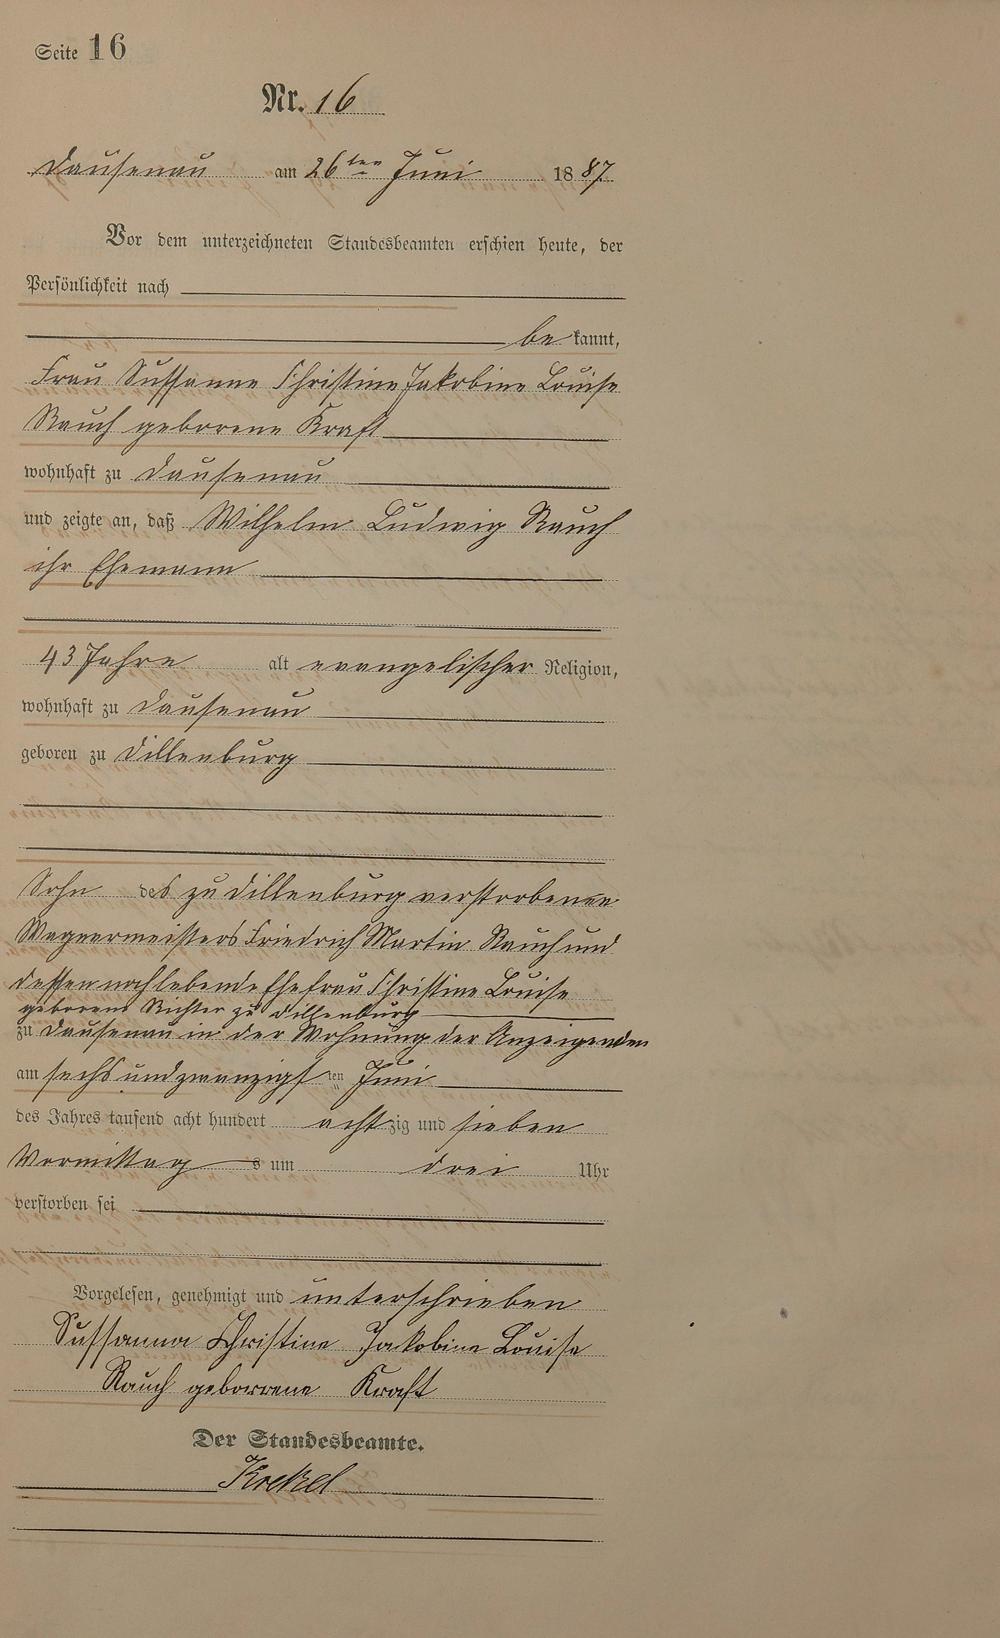 Seite 16
Nr. 16
Dausenau am 26ten Juni 1887.
Vor dem unterzeichneten Standesbeamten erschien heute, der
Persönlichkeit nach
bekannt,
Frau Sussanne Christine Jakobine Louise
Rauch geborene Kraft
wohnhaft zu Dausenau
und zeigte an, daß Wilhelm Ludwig Rauch
ihr Ehemann
43 Jahre alt evangelischer Religion,
wohnhaft zu Dausenau
geboren zu Dillenburg
Sohn des zu Dillenburg verstorbenen
Wagnermeisters Friedrich Martin Rauch und
dessen noch lebende Ehefrau Christine Louise
geborene Richter zu Dillenburg
zu Dausenau in der Wohnung der Anzeigenden
am sechs und zwanzigsten Juni
des Jahres tausend acht hundert achtzig und sieben
Vormittags um drei Uhr
verstorben sei
Vorgelesen, genehmigt und unterschrieben
Sussanna Christine Jakobine Louise
Rauch geborrene Kraft
Der Standesbeamte.
Krekel